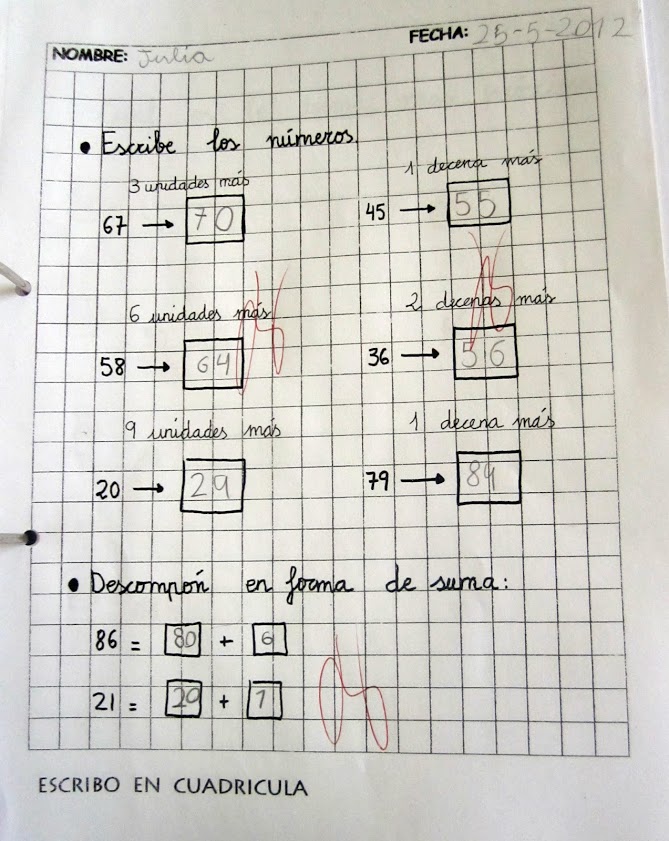 NOMBRE: Julia FECHA: 25-5-2012
• Escribe los números.
3 unidades más 1 decena más
67 → 70 45 → 55
6 unidades más 2 decenas más
58 → 64 36 → 56
9 unidades más 1 decena más
20 → 29 79 → 89
• Descompón en forma de suma:
86 = 80 + 6
21 = 20 + 1
ESCRIBO EN CUADRICULA